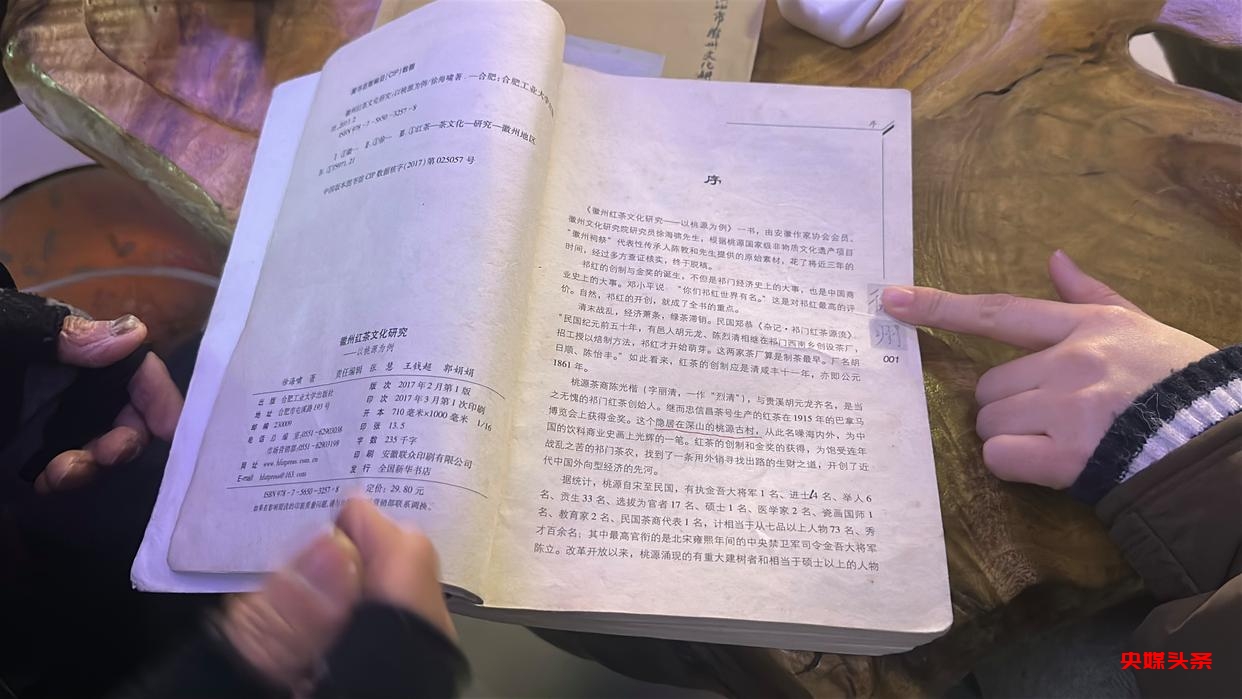 图书在版编目(CIP)数据
徽州红茶文化研究:以桃源为例/徐海啸著.—合肥:合肥工业大学
2017.2
ISBN 978-7-5650-3257-8
Ⅰ.①徽… Ⅱ.①徐… Ⅲ.①红茶—茶文化—研究—徽州地区
Ⅳ.①TS971.21
中国版本图书馆CIP数据核字(2017)第025057号
徽州红茶文化研究
——以桃源为例
徐海啸 著
责任编辑 张 慧 王钱超 郭娟娟
出 版 合肥工业大学出版社
地 址 合肥市屯溪路193号
邮 编 230009
电 话 总 编 室:0551-62903038
市场营销部:0551-62903198
网 址 www.hfutpress.com.cn
E-mail hfutpress@163.com
版 次 2017年2月第1版
印 次 2017年3月第1次印刷
开 本 710毫米×1000毫米 1/16
印 张 13.5
字 数 235千字
印 刷 安徽联众印刷有限公司
发 行 全国新华书店
ISBN 978-7-5650-3257-8
定价:29.80元
如果有影响阅读的印装质量问题,请与 营销部联系调换。
市徽州文化研
序
序
《徽州红茶文化研究——以桃源为例》一书,由安徽作家协会会员、
徽州文化研究院研究员徐海啸先生,根据桃源国家级非物质文化遗产项目
“徽州祠祭”代表性传承人陈敦和先生提供的原始素材,花了将近三年的
时间,经过多方查证核实,终于脱稿。
祁红的创制与金奖的诞生,不但是祁门经济史上的大事,也是中国商
业史上的大事。邓小平说:“你们祁红世界有名。”这是对祁红最高的评
价。自然,祁红的开创,就成了全书的重点。
清末战乱,经济萧条,绿茶滞销。民国郑恭《杂记·祁门红茶源流》:
“民国纪元前五十年,有邑人胡元龙、陈烈清相继在祁门西南乡创设茶厂,
招工授以焙制方法,祁红才开始萌芽。这两家茶厂算是制茶最早。厂名胡
日顺、陈怡丰。”如此看来,红茶的创制应是清咸丰十一年,亦即公元
1861年。
桃源茶商陈光楷(字丽清,一作“烈清”),与贵溪胡元龙齐名,是当
之无愧的祁门红茶创始人。继而忠信昌茶号生产的红茶在1915年的巴拿马
博览会上获得金奖。这个隐居在深山的桃源古村,从此名噪海内外,为中
国的饮料商业史画上光辉的一笔。红茶的创制和金奖的获得,为饱受连年
战乱之苦的祁门茶农,找到了一条用外销寻找出路的生财之道,开创了近
代中国外向型经济的先河。
据统计,桃源自宋至民国,有执金吾大将军1名、进士4名、举人6
名、贡生33名、选拔为官者17名、硕士1名、医学家2名、瓷画国师1
名、教育家2名、民国茶商代表1名,计相当于从七品以上人物73名、秀
才百余名;其中最高官衔的是北宋雍熙年间的中央禁卫军司令金吾大将军
陈立。改革开放以来,桃源涌现的有重大建树者和相当于硕士以上的人物
州
001
央媒头条